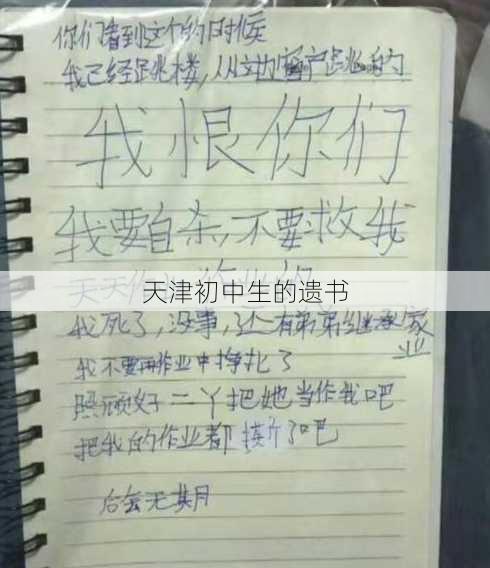 你们看到这个的时候
我已经跳楼,从这边窗户跳的
我恨你们
我要自杀,不要救我
天天作
天津初中生的遗书
我死了,没事,还有弟弟继承家业
我不要再作业中挣扎了
照顾好二丫把她当作我吧
把我的作业都撕了吧
后会无期